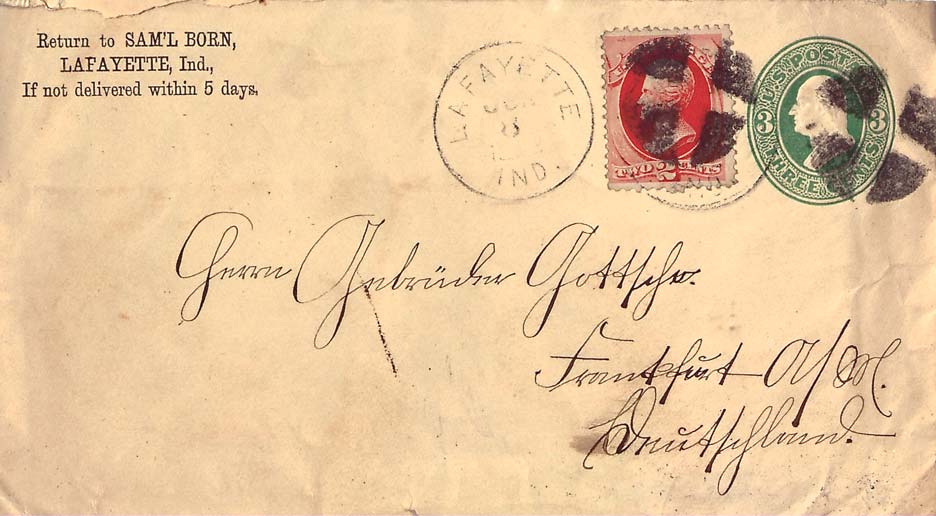 Return to SAM'L BORN,
LAFAYETTE, Ind.,
If not delivered within 5 days.
LAFAYETTE
8
IND.
TWO 2 CENTS
U.S. POSTAGE
3 3
THREE CENTS
Herrn Gebrüder
Frankfurt A/M.
Deutschland.